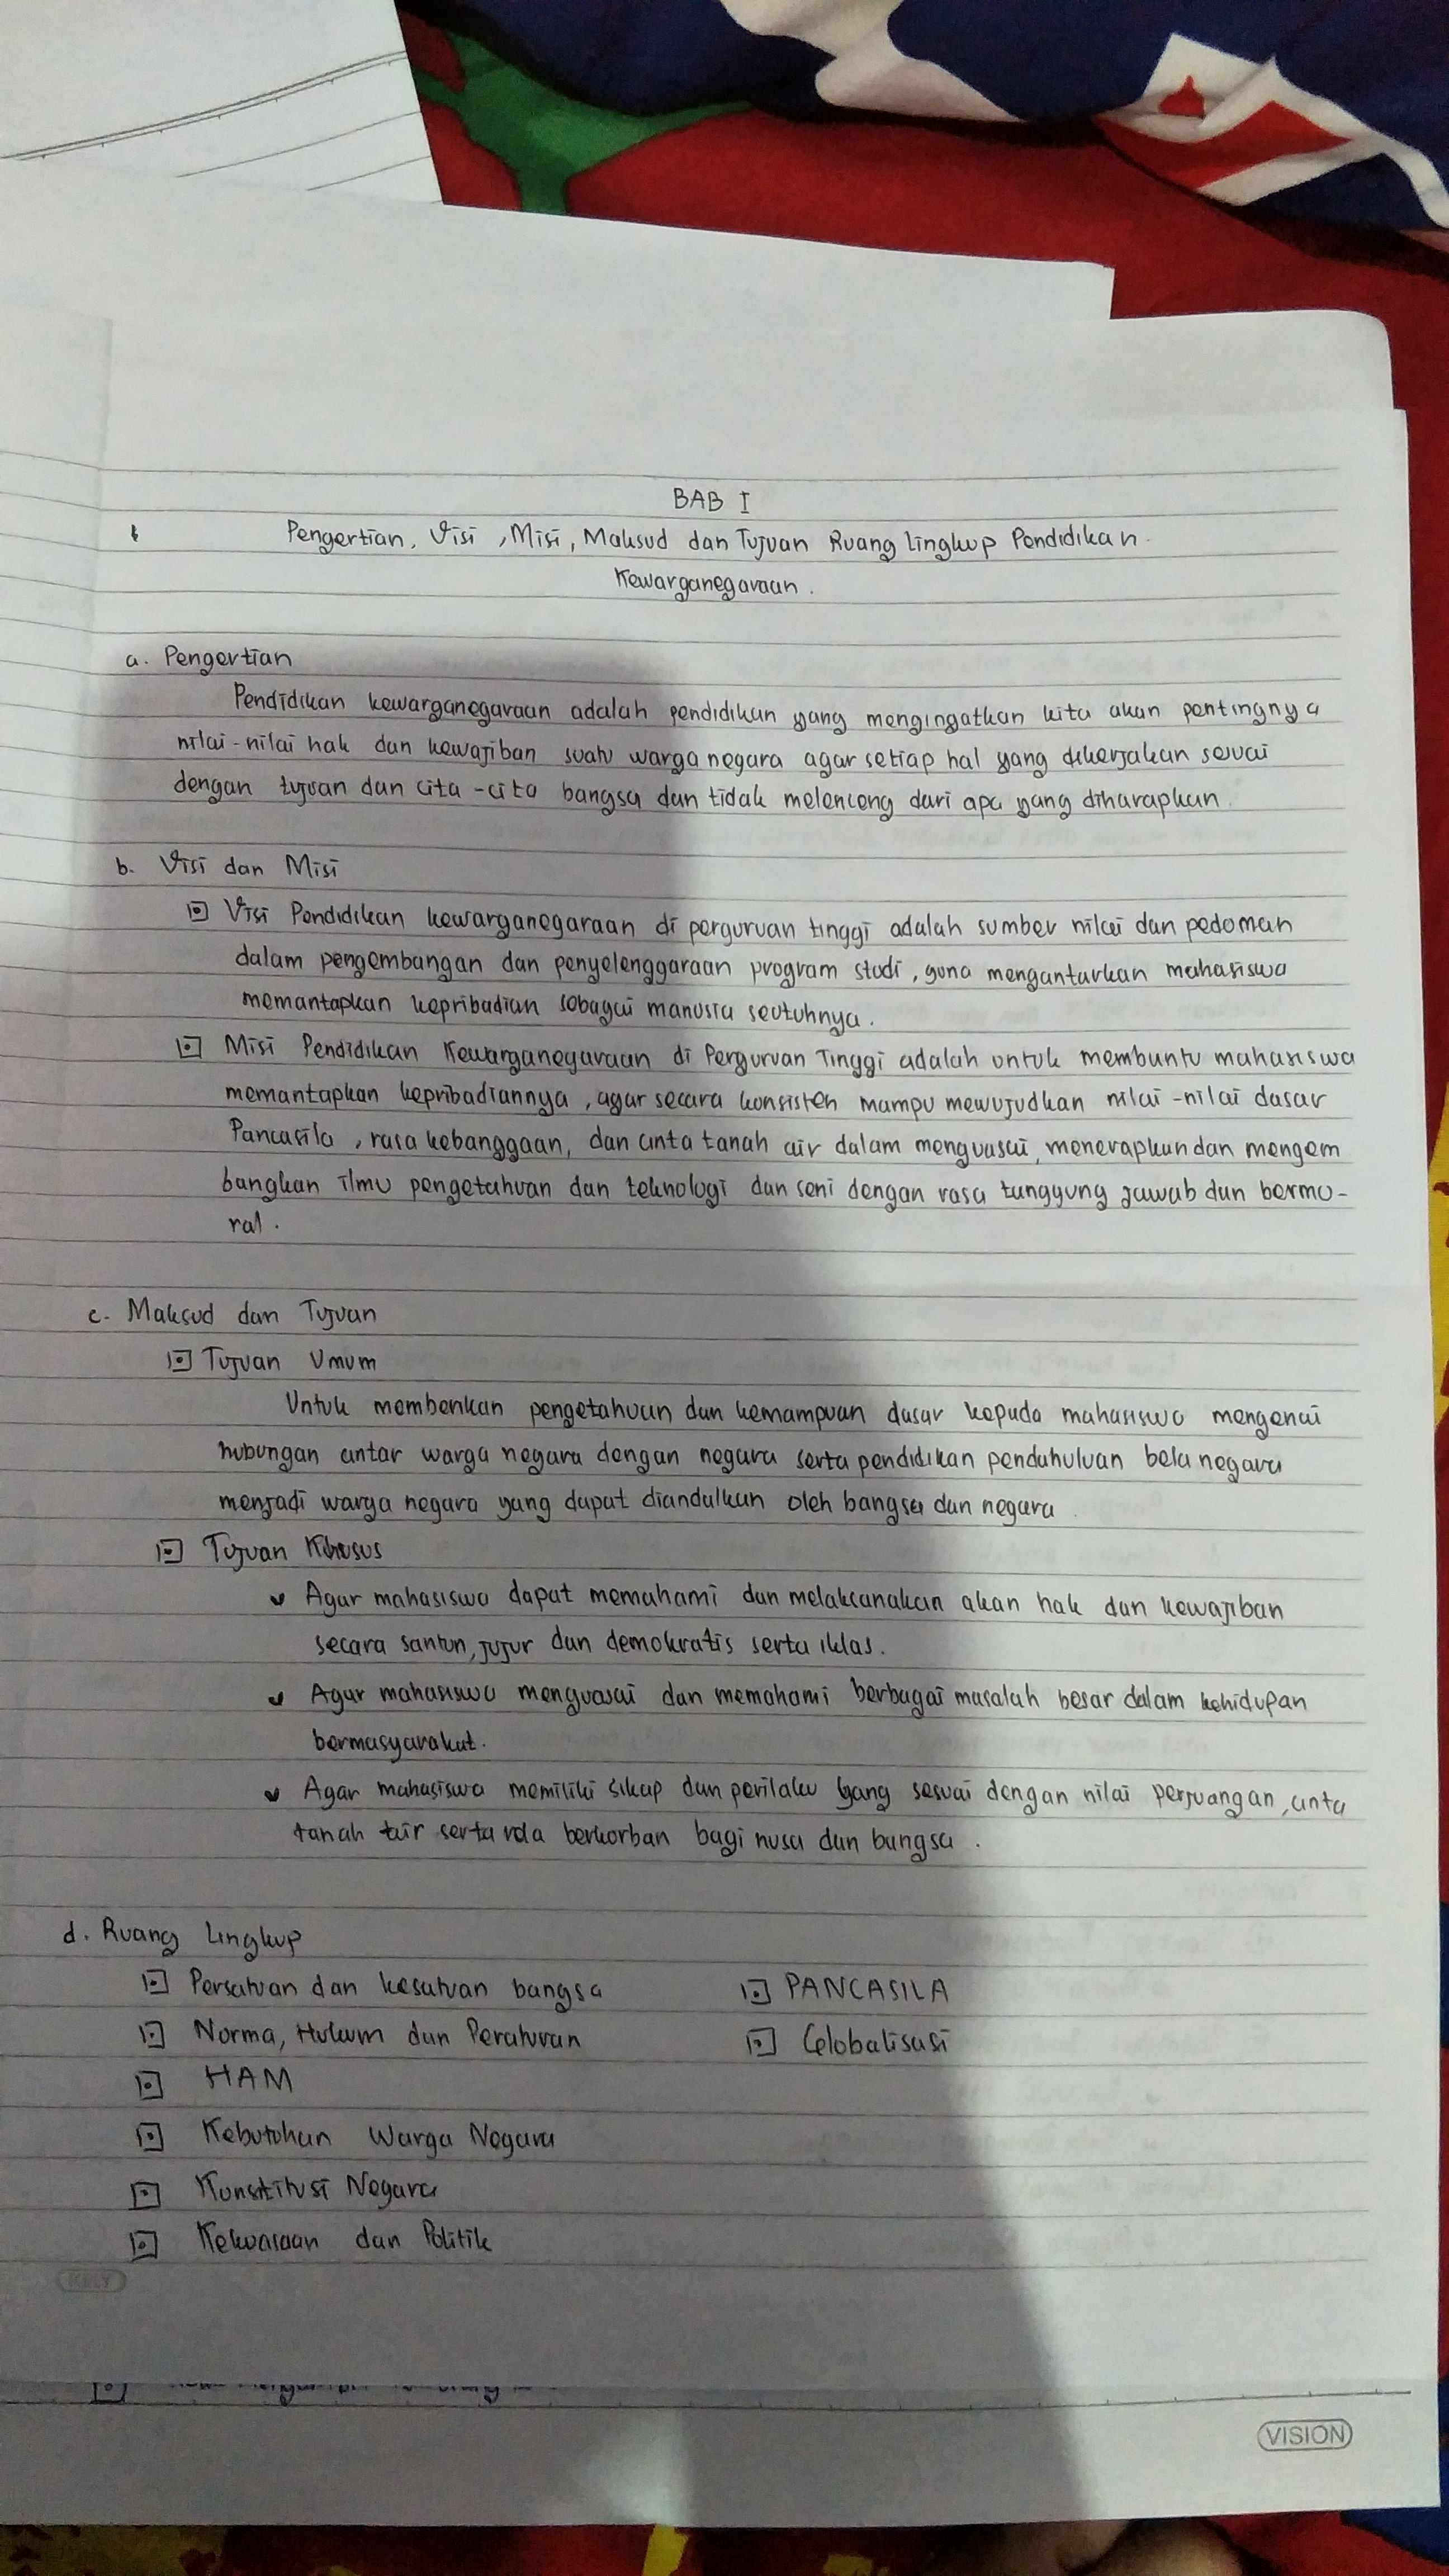 BAB I
Pengertian, Visi, Misi, Maksud dan Tujuan Ruang Lingkup Pendidikan
Kewarganegaraan.
a. Pengertian
Pendidikan kewarganegaraan adalah pendidikan yang mengingatkan kita akan pentingnya
nilai-nilai hak dan kewajiban suatu warga negara agar setiap hal yang dikerjakan sesuai
dengan tujuan dan cita-cita bangsa dan tidak melenceng dari apa yang diharapkan.
b. Visi dan Misi
Visi Pendidikan kewarganegaraan di perguruan tinggi adalah sumber nilai dan pedoman
dalam pengembangan dan penyelenggaraan program studi, guna mengantarkan mahasiswa
memantapkan kepribadian sebagai manusia seutuhnya.
Misi Pendidikan Kewarganegaraan di Perguruan Tinggi adalah untuk membantu mahasiswa
memantapkan kepribadiannya, agar secara konsisten mampu mewujudkan nilai-nilai dasar
Pancasila, rasa kebanggaan, dan cinta tanah air dalam menguasai, menerapkan dan mengem
bangkan ilmu pengetahuan dan teknologi dan seni dengan rasa tanggung jawab dan bermo-
ral.
c. Maksud dan Tujuan
Tujuan Umum
Untuk memberikan pengetahuan dan kemampuan dasar kepada mahasiswa mengenai
hubungan antar warga negara dengan negara serta pendidikan pendahuluan bela negara
menjadi warga negara yang dapat diandalkan oleh bangsa dan negara
Tujuan Khusus
Agar mahasiswa dapat memahami dan melaksanakan akan hak dan kewajiban
secara santun, jujur dan demokratis serta iklas.
Agar mahasiswa menguasai dan memahami berbagai masalah besar dalam kehidupan
bermasyarakat.
Agar mahasiswa memiliki sikap dan perilaku yang sesuai dengan nilai perjuangan, cinta
tanah air serta rela berkorban bagi nusa dan bangsa.
d. Ruang Lingkup
Persatuan dan kesatuan bangsa PANCASILA
Norma, Hukum dan Peraturan Globalisasi
HAM
Kebutuhan Warga Negara
Konstitusi Negara
Kekuasaan dan Politik
KIKY
VISION